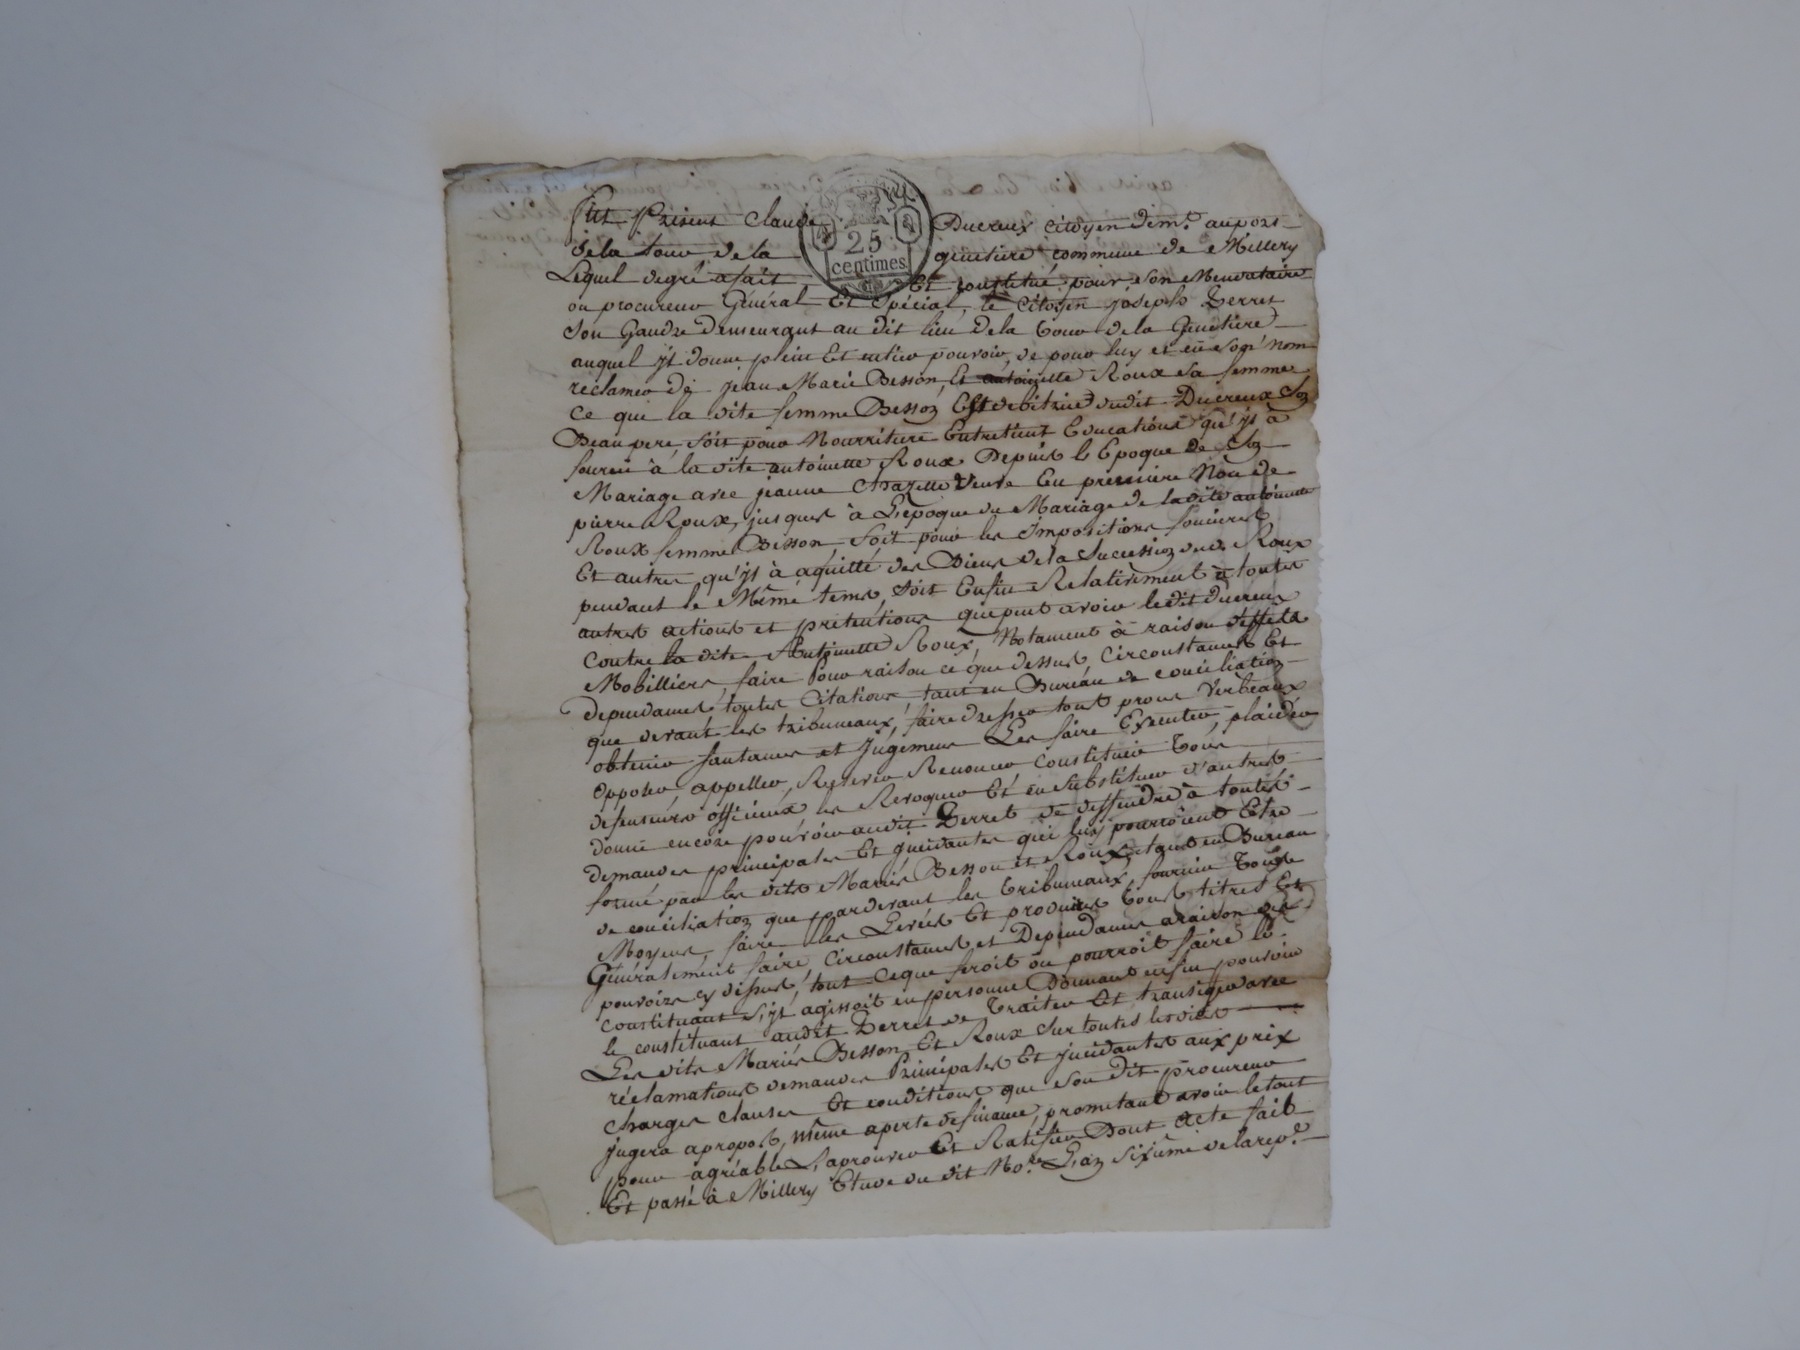 Fut Présent Claude Ducreux citoyen dem.t au port
de la tour de la genetiere commune de Millery
Lequel de gré a fait, Et constitué pour son Mendataire
ou procureur Général Et Spécial, le Citoyen joseph Derret
Son Gendre demeurant au dit lieu dela tour de la Genetiere
auquel yl donne plein Et entier pouvoir, de pour luy et en son nom
réclamer de jean Marie Besson, Et antoinette Roux sa femme
ce que la dite femme Besson Est debitrice dudit Ducreux Son
Beau pere, soit pour Nourriture Entretient Educations qu'yl à
fourni à la dite antoinette Roux Depuis l'Epoque de Son
Mariage avec jeanne Chazelle Veuve En premiere Nôce de
pierre Roux, jusques à L'epoque du Mariage de la dite antoinette
Roux femme Besson, soit pour les Impositions foncieres
Et autres qu'yl à aquitté des Biens de la Succession dud. Roux
pendant le Même tems, soit Enfin Relativement à toutes
autres actions et prétentions que peut avoir le dit ducreux
contre la dite Antoinette Roux, Notament à raison d'effets
Mobilliers, faire pour raison ce que dessus, circonstances Et
dependances toutes Citations, tant en Bureau de conciliation
que devant les tribuneaux, faire dresser tout procès Verbeaux
obtenir sentences et Jugemens Les faire Executer, plaider
opposer, appeller, Renoncer Constituer Tous
defenseurs officieux les Revoquer Et en substituer d'autres
donne encore pouvoir audit Derret de deffendre à toutes
demandes principales Et jncidantes qui luy pourroient Etre
formé par les dits Mariés Besson et Roux, tant en Bureau
de conciliation que pardevant les tribuneaux, fournir Tous
Moyens, faire les Levées Et produire tous titres Et
Généralement faire, Circonstances et Dependances araison des
pouvoirs cy dessus, tout ceque feroit ou pourroit faire le
constituant s'yl agissoit en personne Donnant enfin pouvoir
le constituant audit Derret de Traiter Et transiger avec
Les dits Mariés Besson Et Roux sur toutes lesdites
réclamations demandes Principales Et jncidantes aux prix
charges clauses Et conditions que son dit procureur
jugera apropos, même aperte de finance, prometant avoir le tout
pour agréable L'aprouver Et Ratifier Dont Acte fait
Et passé à Millery Etude du dit No.re L'an sixieme de la rep.e
25
centimes